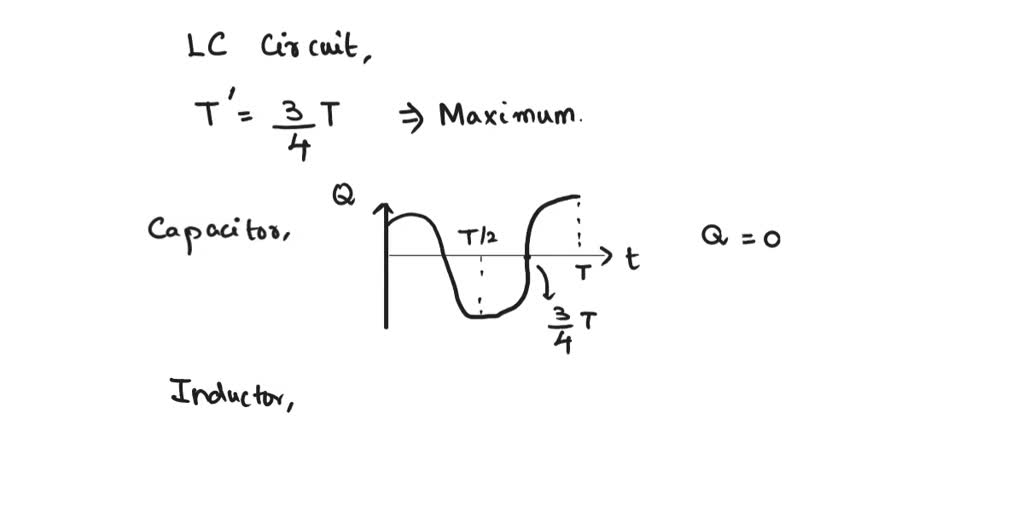 LC Circuit,
T' = 3/4 T ⇒ Maximum.
Q
Capacitor,
T/2
Q = 0
t
T
3/4 T
Inductor,